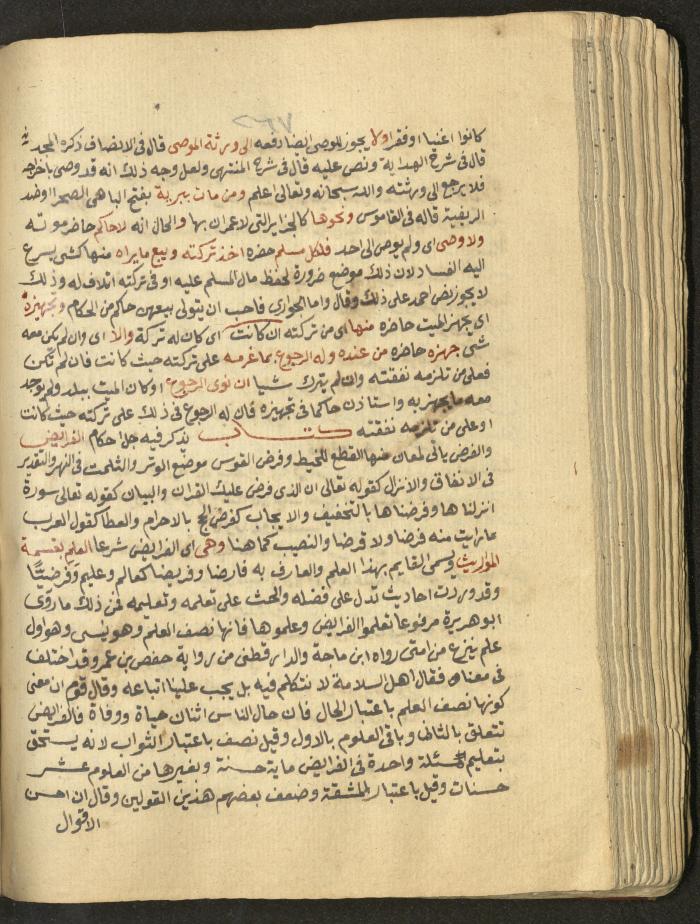 ٢٦٧
كانوا اغنيا او فقرا ولا يجوز للوصى ايضا دفعه الى ورثة الموصى قال فى الانصاف ذكره المجد
قال فى شرح الهداية ونص عليه قال فى شرح المنتهى ولعل وجه ذلك انه قد وصى باخراجه
فلا يرجع الى ورثته والله سبحانه وتعالى اعلم ومن مات ببرية بفتح البا هى الصحرا وضد
الريفية قاله فى القاموس ونحوها كالجزاير التى لا عمران بها والحال انه لا حاكم حاضر موته
ولا وصى اى ولم يوص الى احد فلكل مسلم حضره اخذ تركته وبيع ما يراه منها كشى يسرع
اليه الفساد لان ذلك موضع ضرورة لحفظ مال المسلم عليه اذ فى تركته اتلافه وذلك
لا يجوز نص احمد على ذلك وقال واما الجوارى فاحب ان يتولى بيعهن حاكم من الحكام وتجهيزه
اى يجهز الميت حاضره منها اى من تركته ان كانت اى كان له تركة والا اى وان لم يكن معه
شى جهزه حاضره من عنده وله الرجوع بما غرمه على تركته حيث كانت فان لم تكن
فعلى من تلزمه نفقته وان لم يترك شيا ان نوى الرجوع او كان الميت ببلد ولم يوجد
معه ما يجهز به واستاذن حاكما فى تجهيزه فان له الرجوع فى ذلك على تركته حيث كانت
او على من تلزمه نفقته كتاب يذكر فيه جل احكام الفرايض
والفرض ياتى لمعان منها القطع للخيط وفرض القوس موضع الوتر والثلمت فى النهر والتقدير
فى الانفاق والانزال كقوله تعالى ان الذى فرض عليك القران والبيان كقوله تعالى سورة
انزلناها وفرضناها بالتخفيف والايجاب كفرض الحج بالاحرام والعطا كقول العرب
ما رايت منه فرضا ولا قرضا والنصيب كما هنا وهى اى الفرايض شرعا العلم بقسمة
المواريث ويسمى القايم بهذا العلم والعارف به فارضا وفريضا كعالم وعليم وفرضيًا
وقد وردت احاديث تدل على فضله والحث على تعلمه وتعليمه فمن ذلك ما روى
ابو هريرة مرفوعا تعلموا الفرايض وعلموها فانها نصف العلم وهو ينسى وهو اول
علم ينزع من امتى رواه ابن ماجة والدارقطنى من رواية حفص بن عمر وقد اختلف
فى معناه فقال اهل السلامة لا نتكلم فيه بل يجب علينا اتباعه وقال قوم ان معنى
كونها نصف العلم باعتبار الحال فان حال الناس اثنان حياة ووفاة فالفرايض
تتعلق بالثانى وباقى العلوم بالاول وقيل نصف باعتبار الثواب لانه يستحق
بتعليم مسئلة واحدة فى الفرايض ماية حسنة وبغيرها من العلوم عشر
حسنات وقيل باعتبار المشقة وضعف بعضهم هذين القولين وقال ان احسن
الاقوال